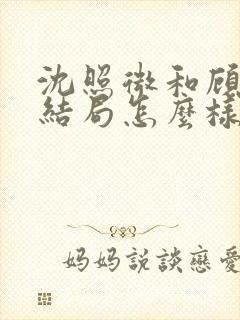 沈照微和顾
結局怎麼樣
妈妈説談戀愛